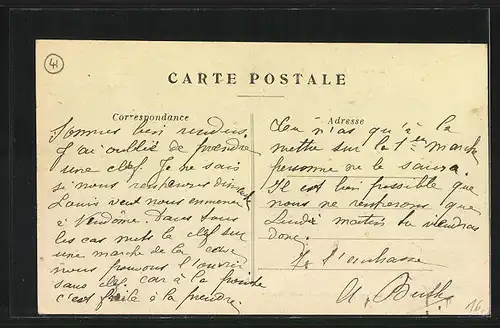 41
CARTE POSTALE
Correspondance
Adresse
Sommes bien rendus.
J'ai oublié de prendre
une clef. Je ne sais
si nous rentrerons dimanche
Louis veut nous emmener
à Vendôme. Dans tous
les cas mets la clef sur
une marche de la cave
nous pouvons l'ouvrir
sans clef. car à la
c'est facile à la prendre.
Tu n'as qu'à la
mettre sur la 1ere marche
personne ne le saura.
Il est bien possible que
nous ne rentrerons que
Lundi matin tu viendras
donc.
Je t'embrasse